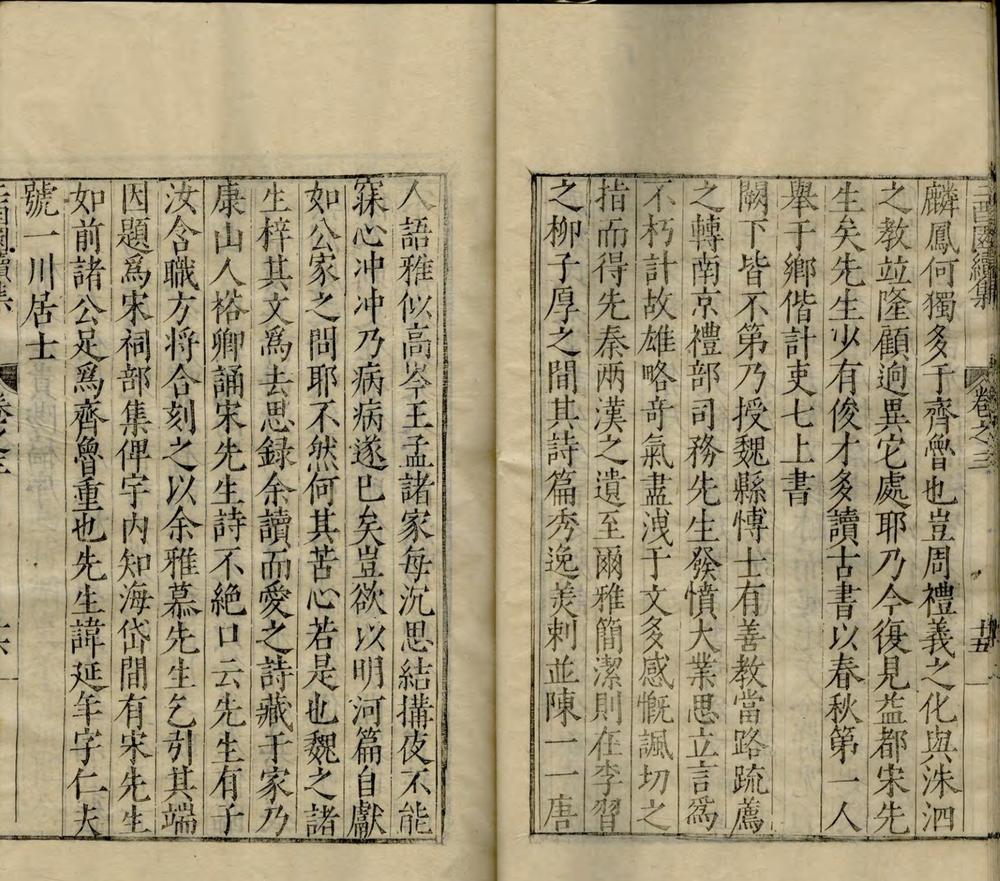 酉園續集
卷之三
十五
麟鳳何獨多于齊魯也豈周禮義之化與洙泗
之教並隆顧逈異它處耶乃今復見益都宋先
生矣先生少有俊才多讀古書以春秋第一人
舉于鄉偕計吏七上書
闕下皆不第乃授魏縣博士有善教當路疏薦
之轉南京禮部司務先生發憤大業思立言爲
不朽計故雄略奇氣盡洩于文多感慨諷切之
指而得先秦兩漢之遺至爾雅簡潔則在李習
之柳子厚之間其詩篇秀逸美刺並陳一一唐
人語雅似高岑王孟諸家每沉思結搆夜不能
寐心冲冲乃病病遂已矣豈欲以明河篇自獻
如公家之問耶不然何其苦心若是也魏之諸
生梓其文爲去思録余讀而愛之詩藏于家乃
康山人裕卿誦宋先生詩不絶口云先生有子
汝含職方将合刻之以余雅慕先生乞引其端
因題爲宋祠部集俾宇内知海岱間有宋先生
如前諸公足爲齊魯重也先生諱延年字仁夫
號一川居士